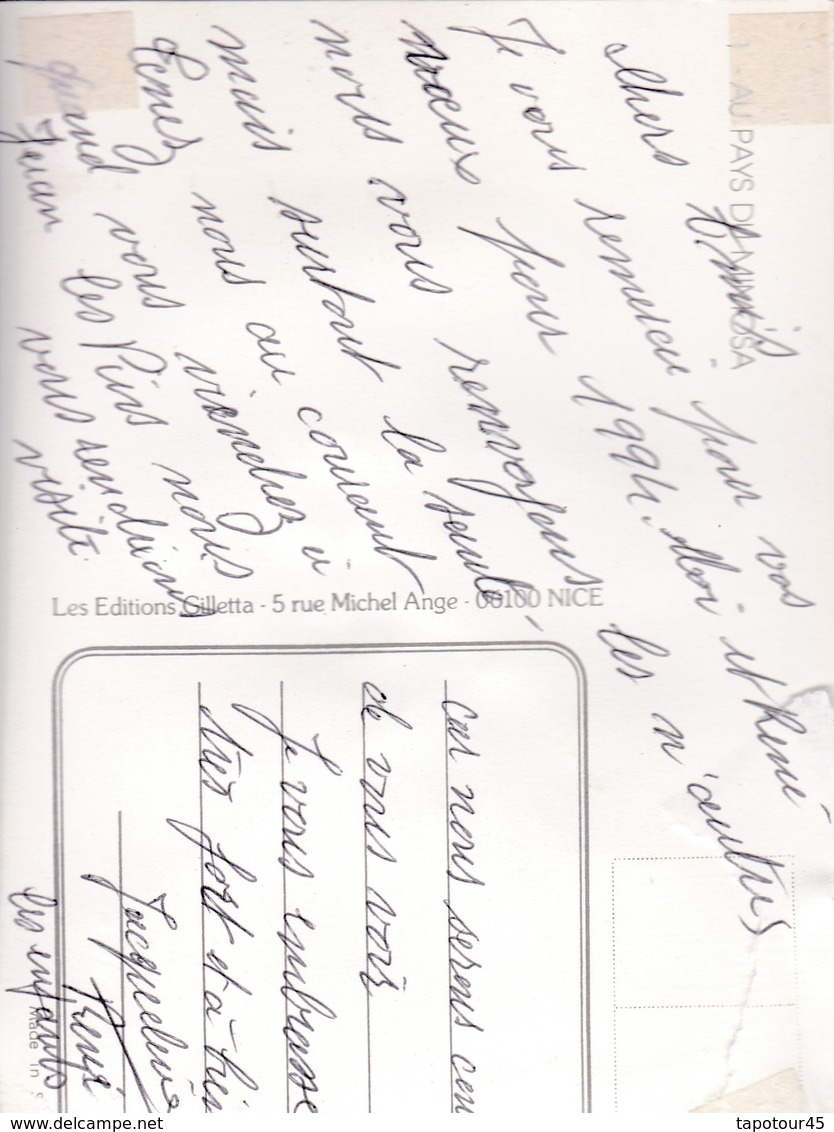 AU PAYS DU MIMOSA
Chers Amis
Je vous remerci pour vos
vœux pour 1994. Moi et René
nous vous renvoyons les n'autres
mais surtout la santé
Tenez nous au courant
quand vous viendrez à
Juan les Pins nous
vous rendrions
visite.
Les Editions Gilletta - 5 rue Michel Ange - 06100 NICE
car nous serons con
de vous voir
Je vous embrasse
très fort et à bien
Jacqueline
René
les enfants
Made in
delcampe.net
tapotour45